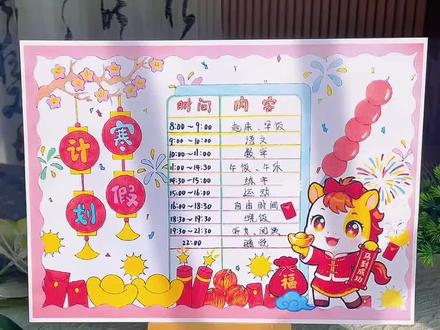 寒假
计划
时间 内容
8:00~9:00 起床、早饭
9:00~10:00 语文
10:00~11:00 数学
11:00~14:30 午饭、午休
14:30~15:00 练字
15:00~16:00 运动
16:00~18:30 自由时间
18:30~19:30 晚饭
19:30~21:30 听力、阅读
22:00 睡觉
福
马到成功